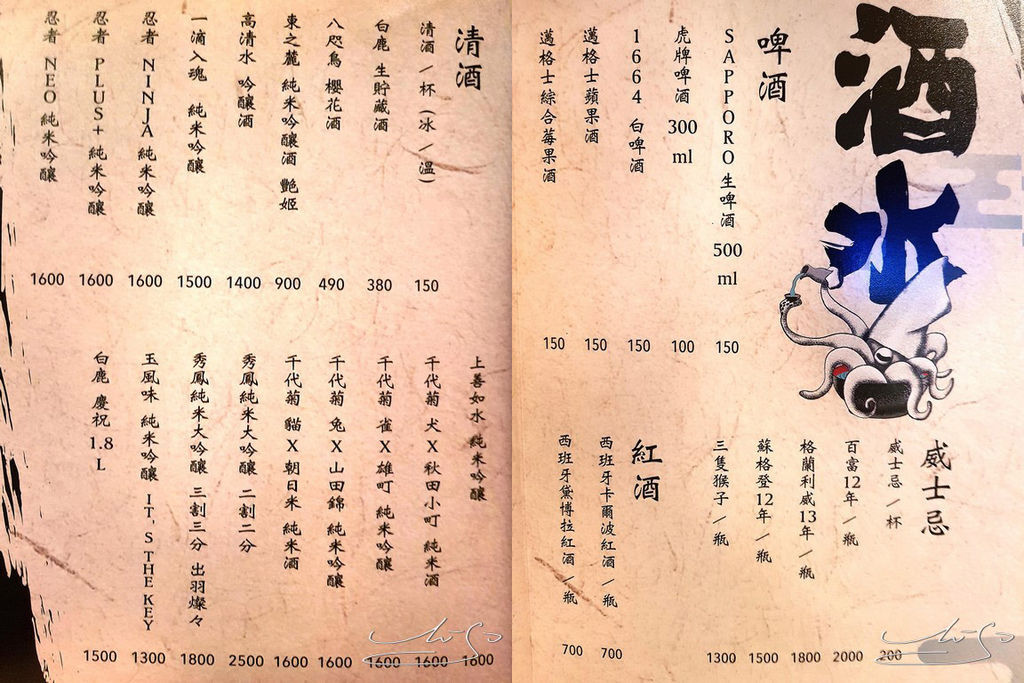 酒水
啤酒
SAPPORO 生啤酒 500 ml
150
虎牌啤酒 300 ml
100
1664 白啤酒
150
邁格士蘋果酒
150
邁格士綜合莓果酒
150
威士忌
威士忌/杯
200
百富12年/瓶
2000
格蘭利威13年/瓶
1800
蘇格登12年/瓶
1500
三隻猴子/瓶
1300
紅酒
西班牙卡爾波紅酒/瓶
700
西班牙黛博拉紅酒/瓶
700
清酒
清酒/杯(冰/溫)
150
白鹿 生貯藏酒
380
八咫烏 櫻花酒
490
東之麓 純米吟釀酒 艷姬
900
高清水 吟釀酒
1400
一滴入魂 純米吟釀
1500
忍者 NINJA 純米吟釀
1600
忍者 PLUS+ 純米吟釀
1600
忍者 NEO 純米吟釀
1600
上善如水 純米吟釀
1600
千代菊 犬X秋田小町 純米酒
1600
千代菊 雀X雄町 純米吟釀
1600
千代菊 兔X山田錦 純米吟釀
1600
千代菊 貓X朝日米 純米酒
1600
秀鳳純米大吟釀 二割二分
2500
秀鳳純米大吟釀 三割三分 出羽燦々
1800
玉風味 純米吟釀 IT'S THE KEY
1300
白鹿 慶祝 1.8 L
1500